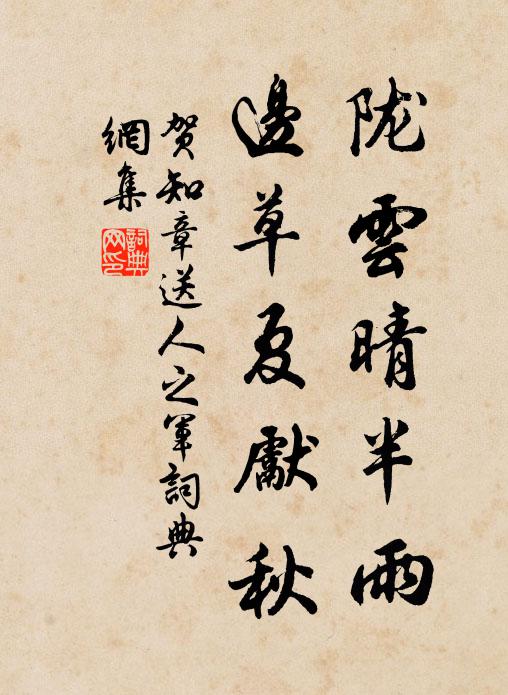 陇雲晴半雨
邊草夏獻秋
贺知章送人之軍詞典
網集
詞典
网印